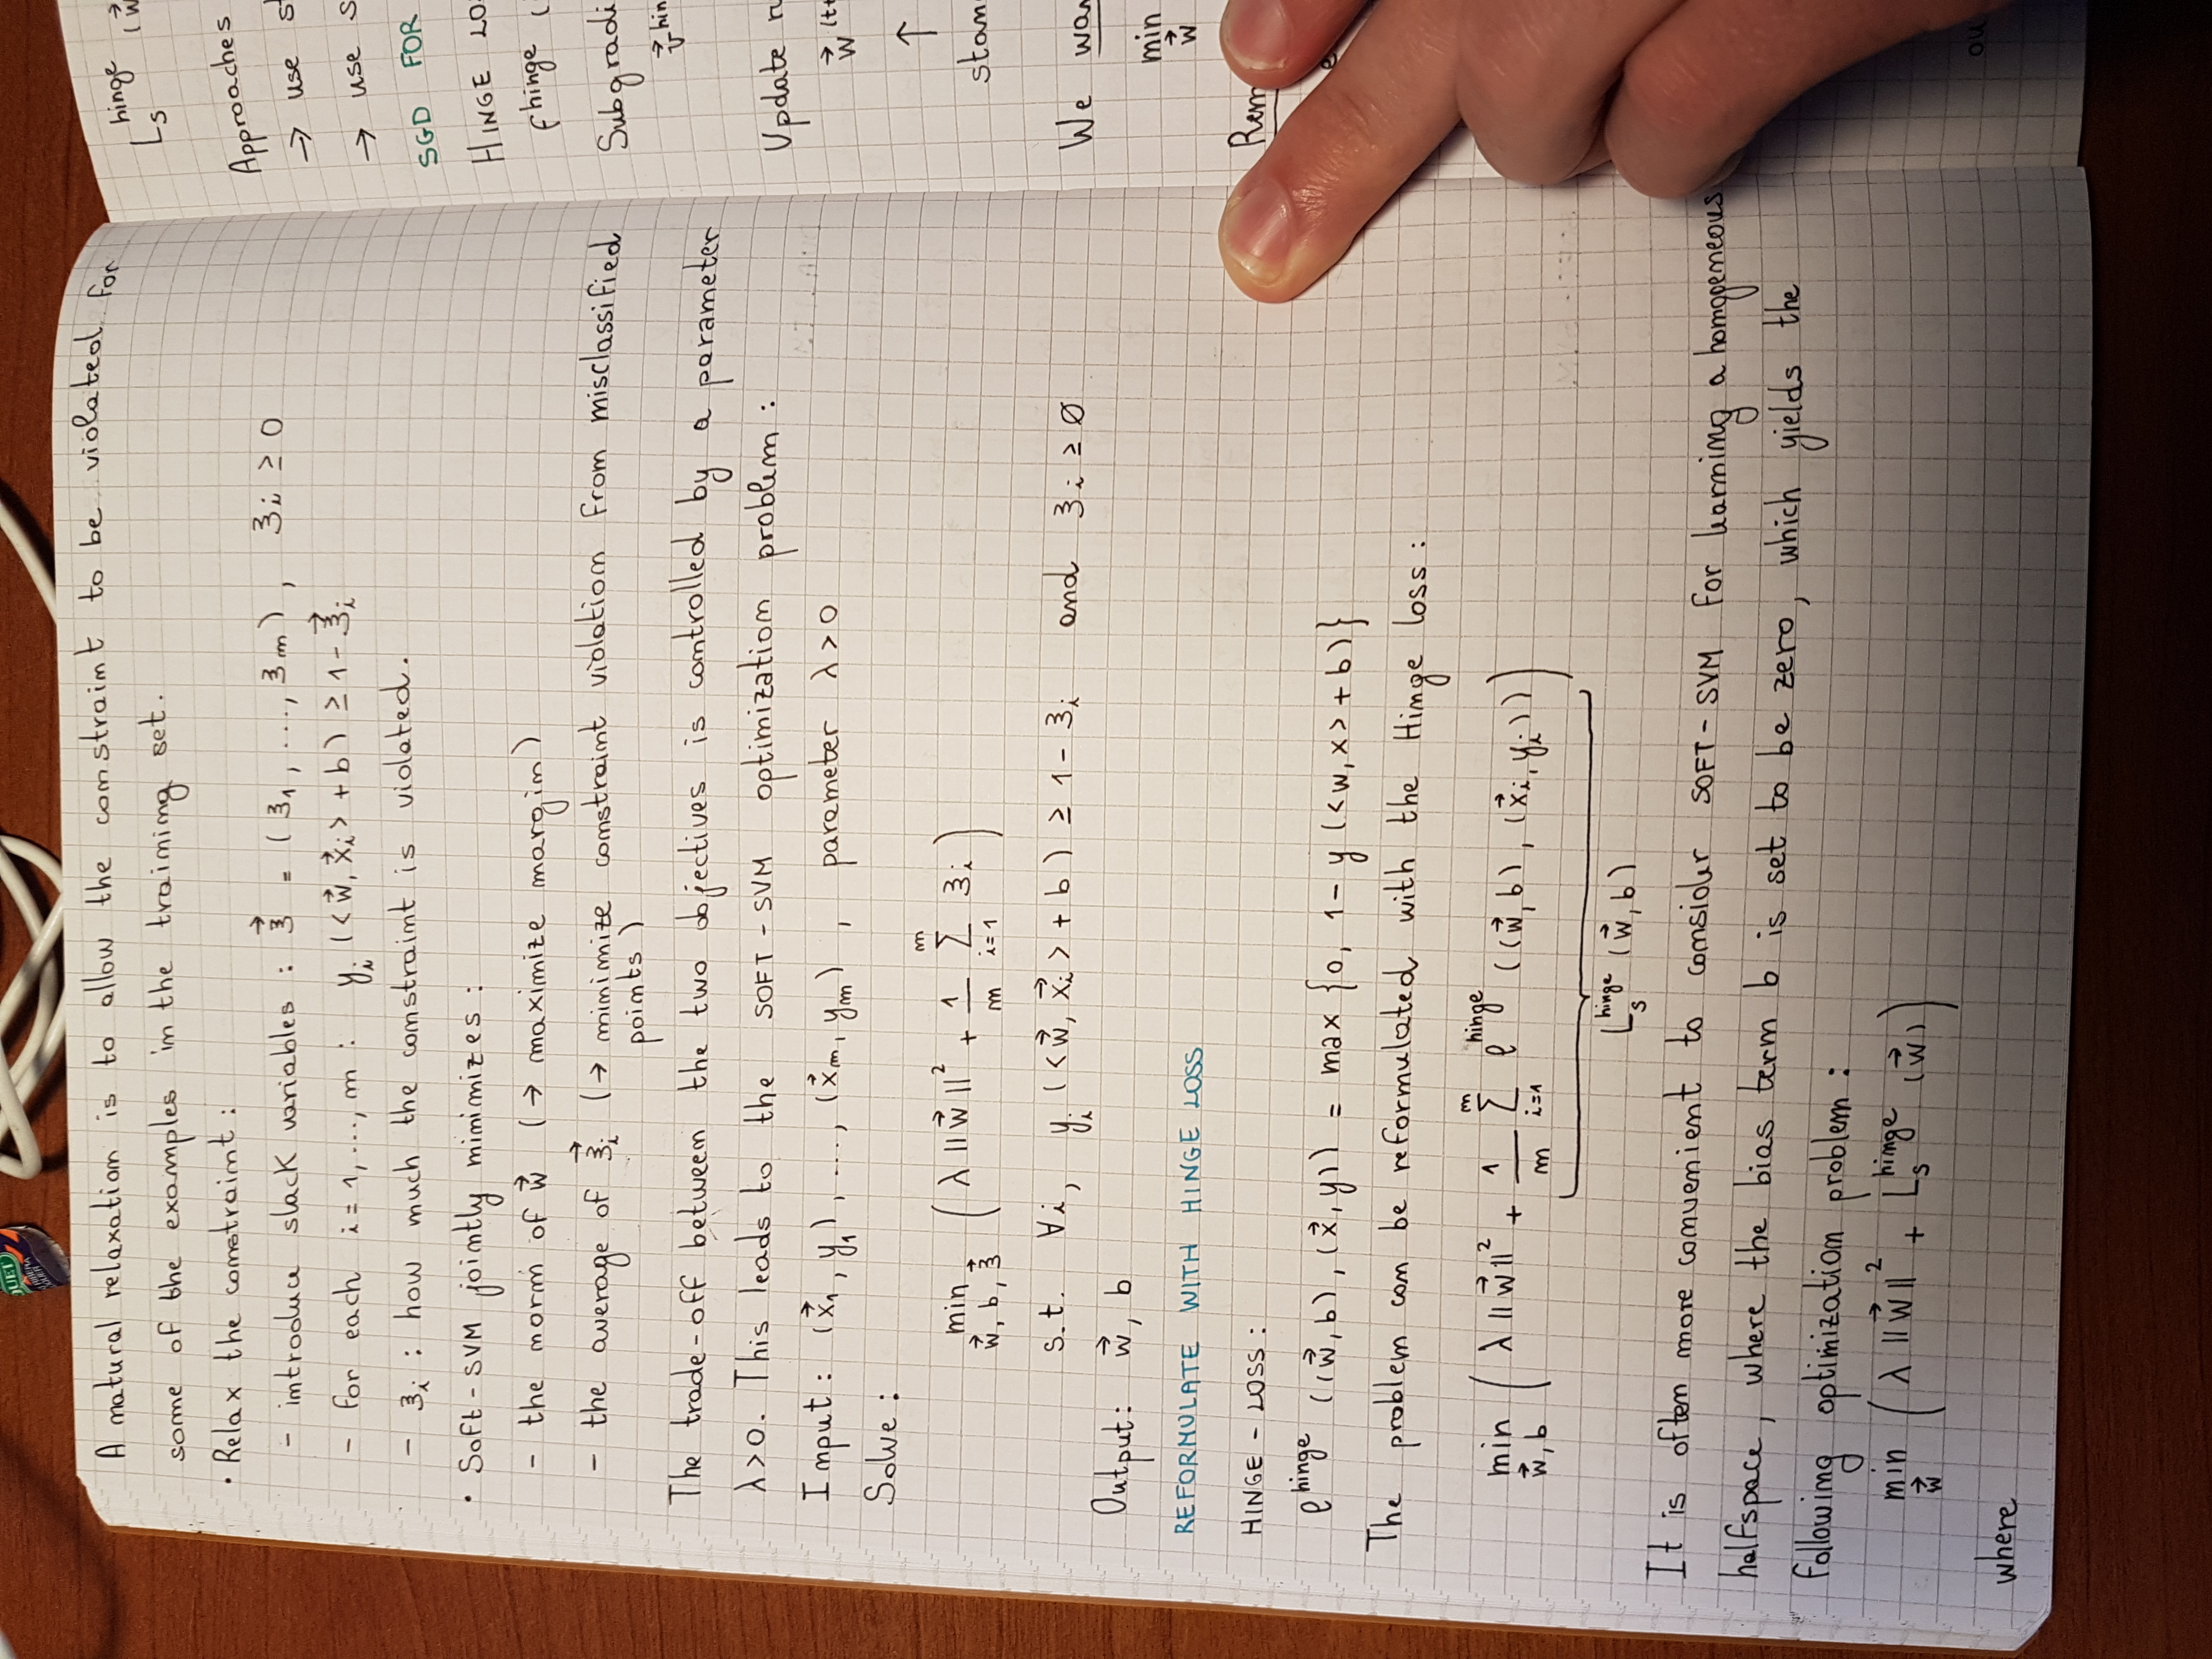 A natural relaxation is to allow the constraint to be violated for
some of the examples in the training set.
• Relax the constraint :
- introduce slack variables : ξ⃗ = (ξ₁, ..., ξₘ), ξᵢ ≥ 0
- for each i = 1, ..., m : yᵢ (<w⃗, x⃗ᵢ> + b) ≥ 1 - ξ⃗ᵢ
- ξᵢ : how much the constraint is violated.
• Soft-SVM jointly minimizes :
- the norm of w⃗ (→ maximize margin)
- the average of ξ⃗ᵢ (→ minimize constraint violation from misclassified
points)
The trade-off between the two objectives is controlled by a parameter
λ > 0. This leads to the SOFT-SVM optimization problem :
Input : (x⃗₁, y₁), ..., (x⃗ₘ, yₘ), parameter λ > 0
Solve :
min w⃗, b, ξ⃗ (λ ||w⃗||² + 1/m Σ i=1 m ξᵢ)
s.t. ∀i, yᵢ (<w⃗, x⃗ᵢ> + b) ≥ 1 - ξᵢ and ξᵢ ≥ Ø
Output : w⃗, b
REFORMULATE WITH HINGE LOSS
HINGE - LOSS :
ℓ^hinge ((w⃗, b), (x⃗, y)) = max {0, 1 - y (<w, x> + b)}
The problem can be reformulated with the Hinge loss :
min w⃗, b (λ ||w⃗||² + 1/m Σ i=1 m ℓ^hinge ((w⃗, b), (x⃗ᵢ, yᵢ)))
L_S^hinge (w⃗, b)
It is often more convenient to consider SOFT-SVM for learning a homogeneous
halfspace, where the bias term b is set to be zero, which yields the
following optimization problem :
min w⃗ (λ ||w⃗||² + L_S^hinge (w⃗))
where
L_S^hinge (w⃗
Approaches
→ use
→ use
SGD FOR
HINGE
f^hinge (
Update
w⃗
↑
We
min
w⃗